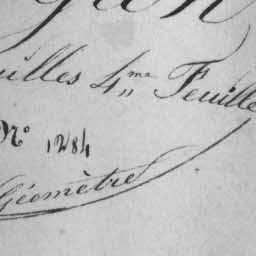 uilles 4me Feuille
N° 1284
Géomètre